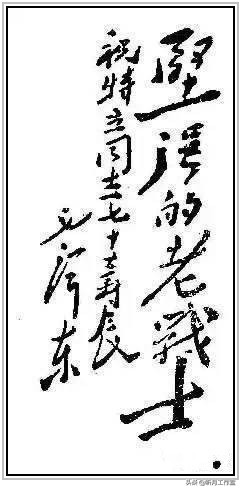 堅强的老戰士
祝特立同志七十大寿辰
毛泽东
头条 @昕月工作室